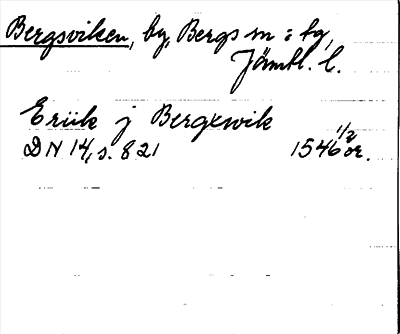 Bergsviken, by, Bergs sn : by,
Jämtl. l.
Eriik j Bergxwik
DN 14, s. 821 1546 1/2 or.